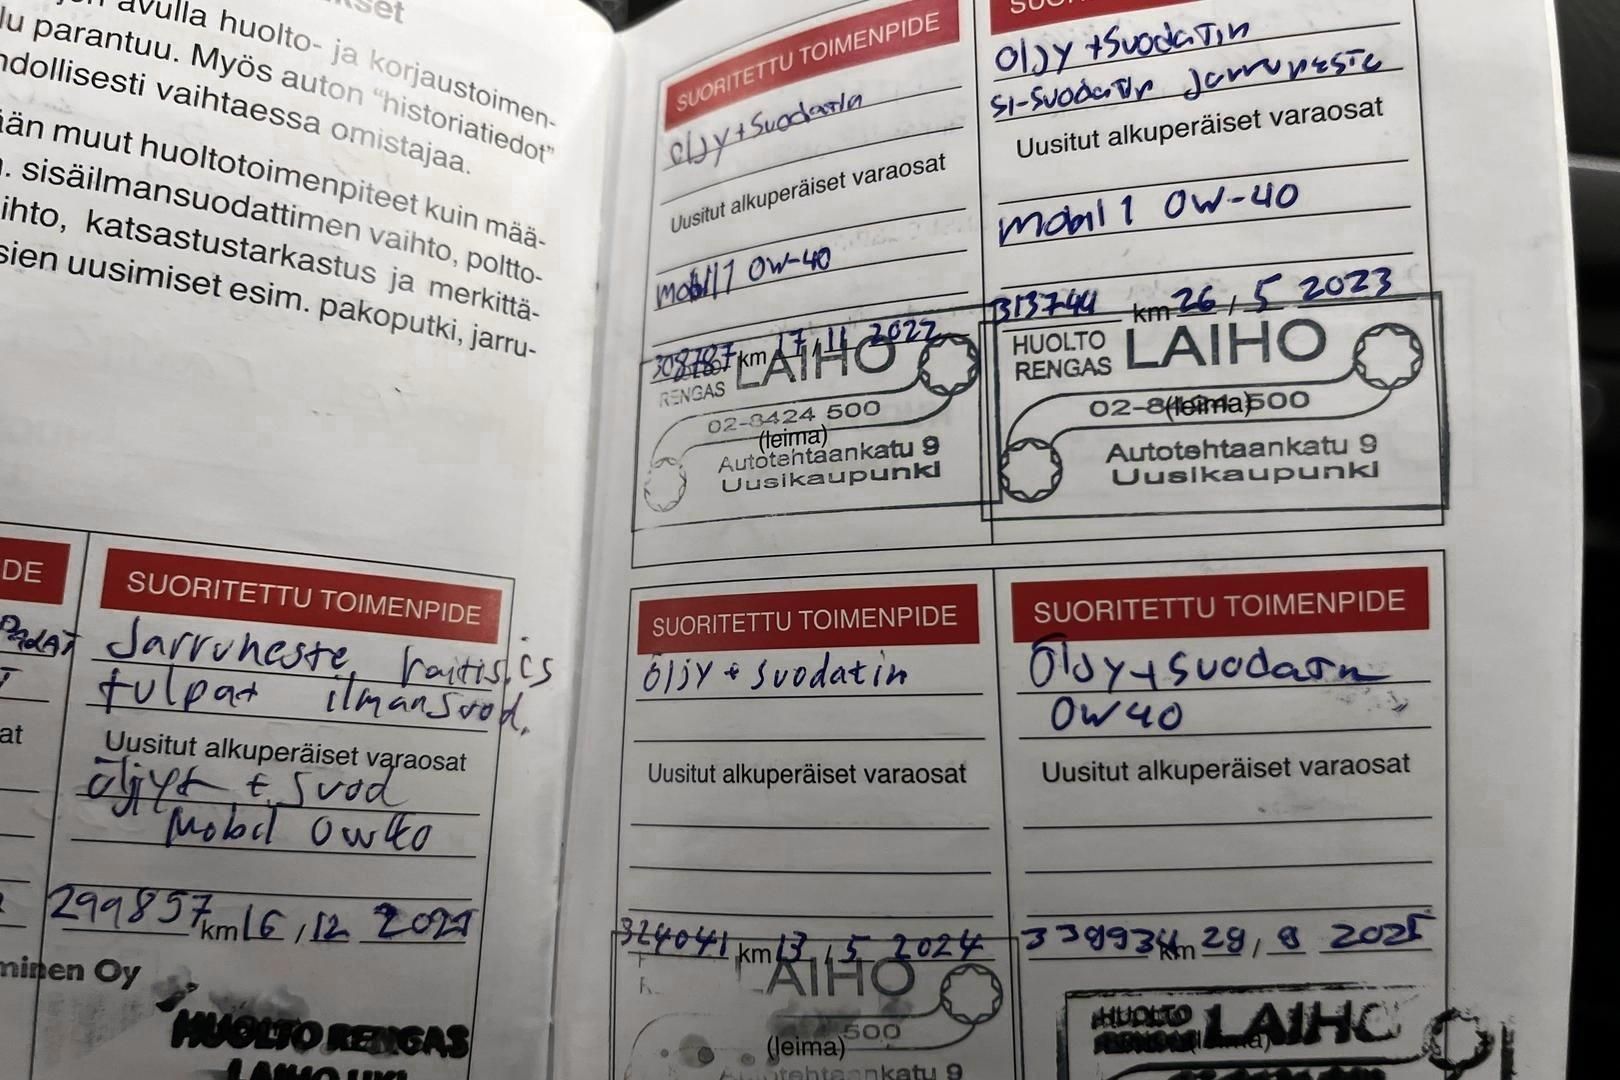 avulla huolto- ja korjaustoimen-
lu parantuu. Myös auton “historiatiedot”
hdollisesti vaihtaessa omistajaa.
ään muut huoltotoimenpiteet kuin mää-
. sisäilmansuodattimen vaihto, poltto-
ihto, katsastustarkastus ja merkittä-
sien uusimiset esim. pakoputki, jarru-
DE
at
minen Oy
SUORITETTU TOIMENPIDE
Jarruneste, raitis.is
tulpat ilmansuod.
Uusitut alkuperäiset varaosat
öljyt + Suod
Mobil 0w40
299857 km 16, 12 2021
HUOLTO RENGAS
LAIHO UKI
SUORITETTU TOIMENPIDE
Öljy + Suodatin
Uusitut alkuperäiset varaosat
mobil 1 0W-40
308787 km 17, 11 2022
RENGAS LAIHO
02-8424 500
(leima)
Autotehtaankatu 9
Uusikaupunki
Öljy + Suodatin
si-suodatin Jarruneste
Uusitut alkuperäiset varaosat
mobil 1 0W-40
313744 km 26, 5 2023
HUOLTO RENGAS LAIHO
02-8424 500
(leima)
Autotehtaankatu 9
Uusikaupunki
SUORITETTU TOIMENPIDE
Öljy + Suodatin
Uusitut alkuperäiset varaosat
324041 km 13, 5 2024
LAIHO
500
(leima)
Autotehtaankatu 9
SUORITETTU TOIMENPIDE
Öljy + Suodatin
0W40
Uusitut alkuperäiset varaosat
km 2025
HUOLTO RENGAS LAIHO
(leima)